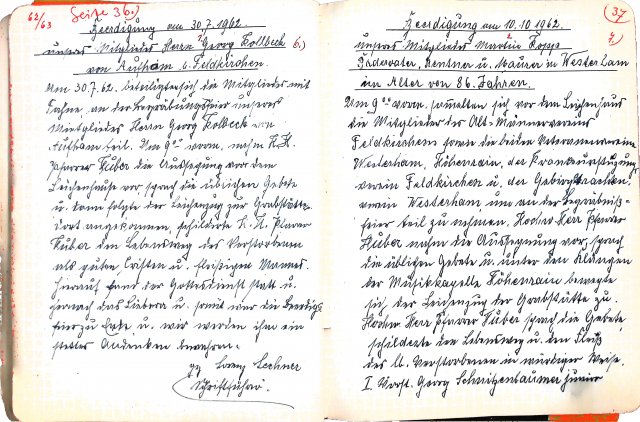 62/63
Seite 36.)
Beerdigung am 30.7.1962
unseres Mitgliedes Herrn Georg Kollbeck 6.)
von Aufham b. Feldkirchen.
Am 30.7.62. beteiligten sich die Mitglieder mit
Fahne, an der Begräbnungsfeier unseres
Mitgliedes Herrn Georg Kolbeck von
Aufham teil. Um 9 00 vorm. nahm H. H.
Pfarrer Huber die Aussegnung vor dem
Leichenhause vor sprach die üblichen Gebete
u. dann folgte der Leichenzug zur Grabstätte.
Dort angekommen, schilderte H. H. Pfarrer
Huber den Lebensweg des Verstorbenen
als guten Christen u. fleißigen Mannes.
Hierauf fand der Gottesdienst statt u.
hernach das Libera u. somit war die Beerdig-
feier zu Ende u. wir werden ihm ein
stetes Andenken bewahren.
gz Lorenz Lechner
Schriftführer.
(37
7.)
Beerdigung am 10.10.1962.
unseres Mitgliedes Martin Kopp
Rentner u. Maurer in Westerham
im Alter von 86. Jahren.
Um 9 00 vorm. sammelten sich vor dem Leichenhaus
die Mitglieder des Alt-Männervereins
Feldkirchen sowie die beiden Veteranenvereine
Westerham, Höhenrain, der
verein Feldkirchen u. der Gebirgstrachten-
verein Westerham um an der Begräbniß-
feier teil zu nehmen. Hochw. Herr Pfarrer
Huber nahm die Aussegnung vor, sprach
die übligen Gebete u. unter den Klängen
der Musikkapelle Höhenrain bewegte
sich, der Leichenzug der Grabstätte zu.
Hochw. Herr Pfarrer Huber sprach die Gebete
schilderte den Lebensweg u. den Fleiß
des lb. Verstorbenen in würdiger Weise.
I. Vorst. Georg Schnitzenbaumer junior